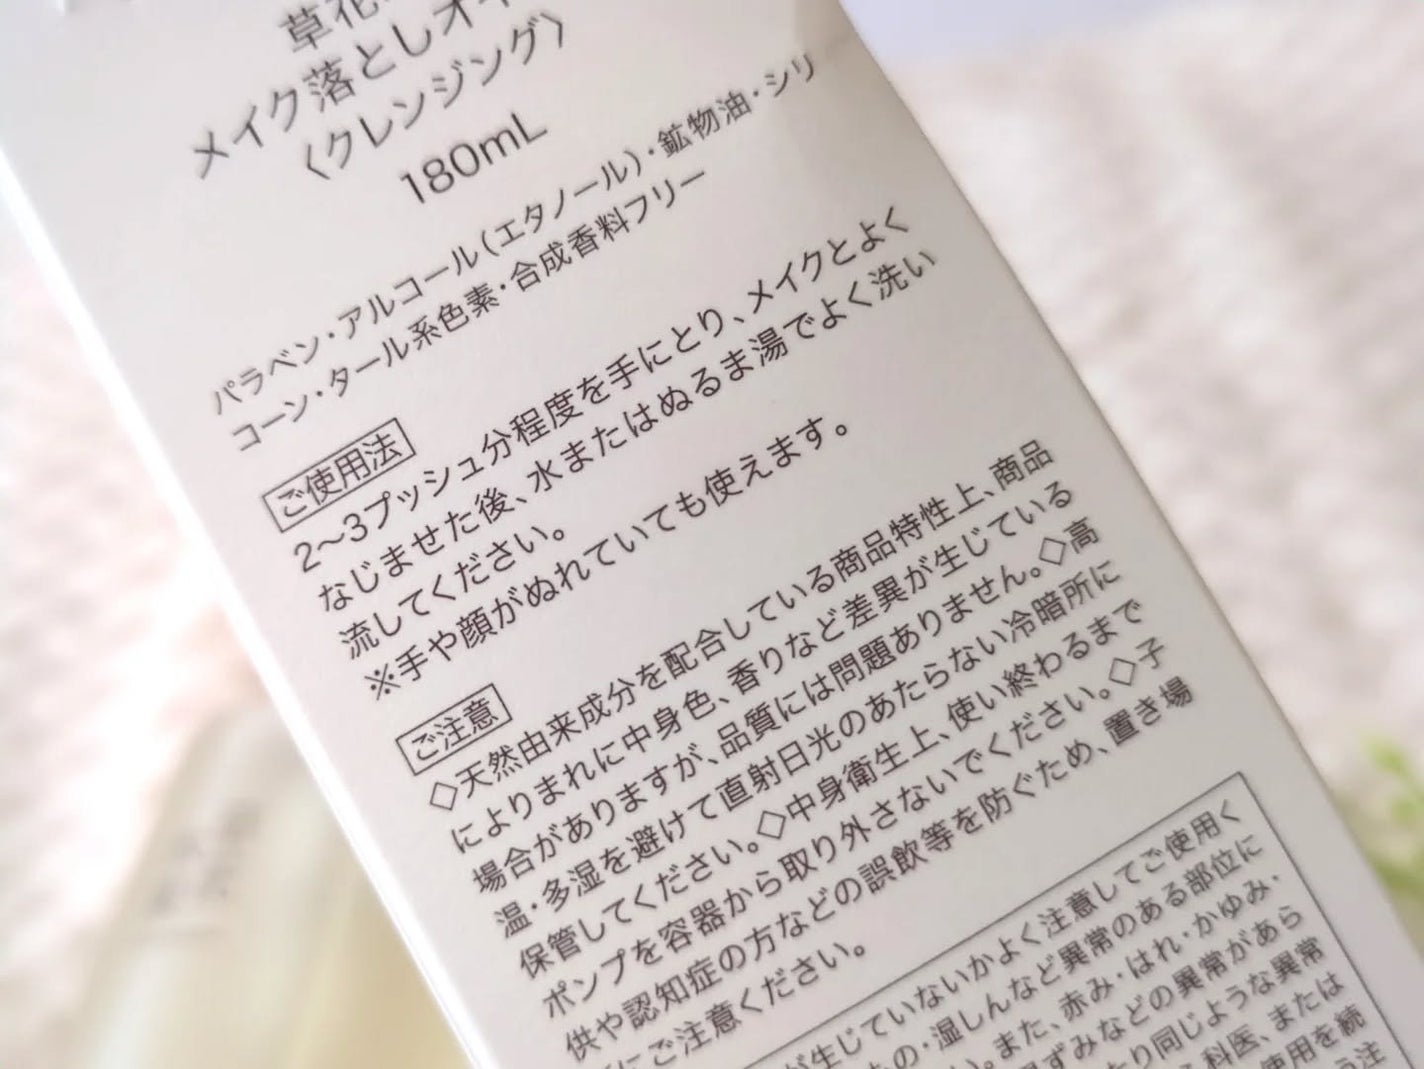 草花
メイク落としオイ
〈クレンジング〉
180mL
パラベン・アルコール(エタノール)・鉱物油・シリ
コーン・タール系色素・合成香料フリー
ご使用法
2〜3プッシュ分程度を手にとり、メイクとよく
なじませた後、水またはぬるま湯でよく洗い
流してください。
※手や顔がぬれていても使えます。
ご注意
◇天然由来成分を配合している商品特性上、商品
によりまれに中身色、香りなど差異が生じている
場合がありますが、品質には問題ありません。◇高
温・多湿を避けて直射日光のあたらない冷暗所に
保管してください。◇中身衛生上、使い終わるまで
ポンプを容器から取り外さないでください。◇子
供や認知症の方などの誤飲等を防ぐため、置き場
にご注意ください。
が生じていないかよく注意してご使用く
の・湿しんなど異常のある部位に
い。また、赤み・はれ・かゆみ・
ずみなどの異常があら
たり同じような異常
科医、または
使用を続
う注